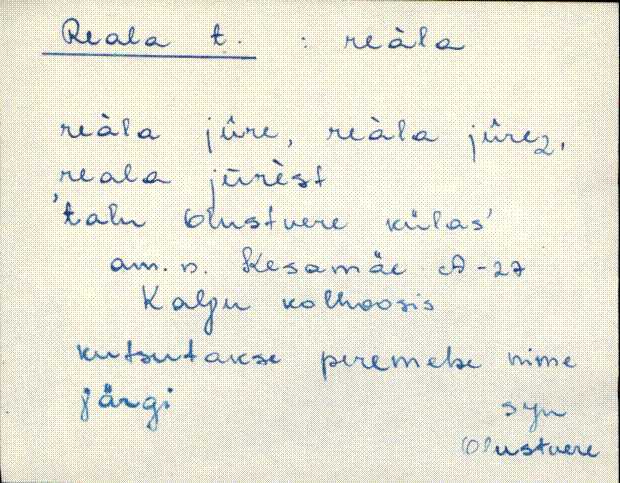 Reala t. : reàla
reàla jûre, reàla jûrez,
reala jūrèst
'talu Olustvere külas'
am. n. Kesamäe A-27
Kalju kolhoosis
kutsutakse peremehe nime
järgi
syn
Olustvere